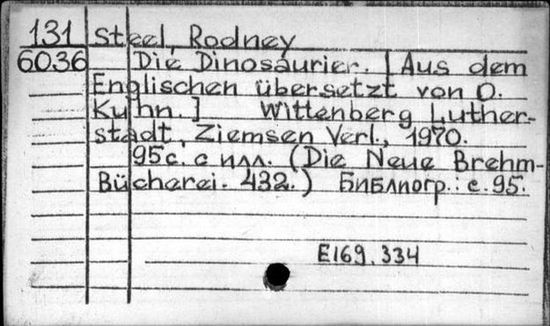 131 Steel, Rodney
6036 Die Dinosaurier. [Aus dem
Englischen übersetzt von O.
Kuhn.] Wittenberg Luther-
stadt, Ziemsen Verl., 1970.
95с. с илл. (Die Neue Brehm-
Bücherei. 432.) Библиогр.: с. 95.
E169.334